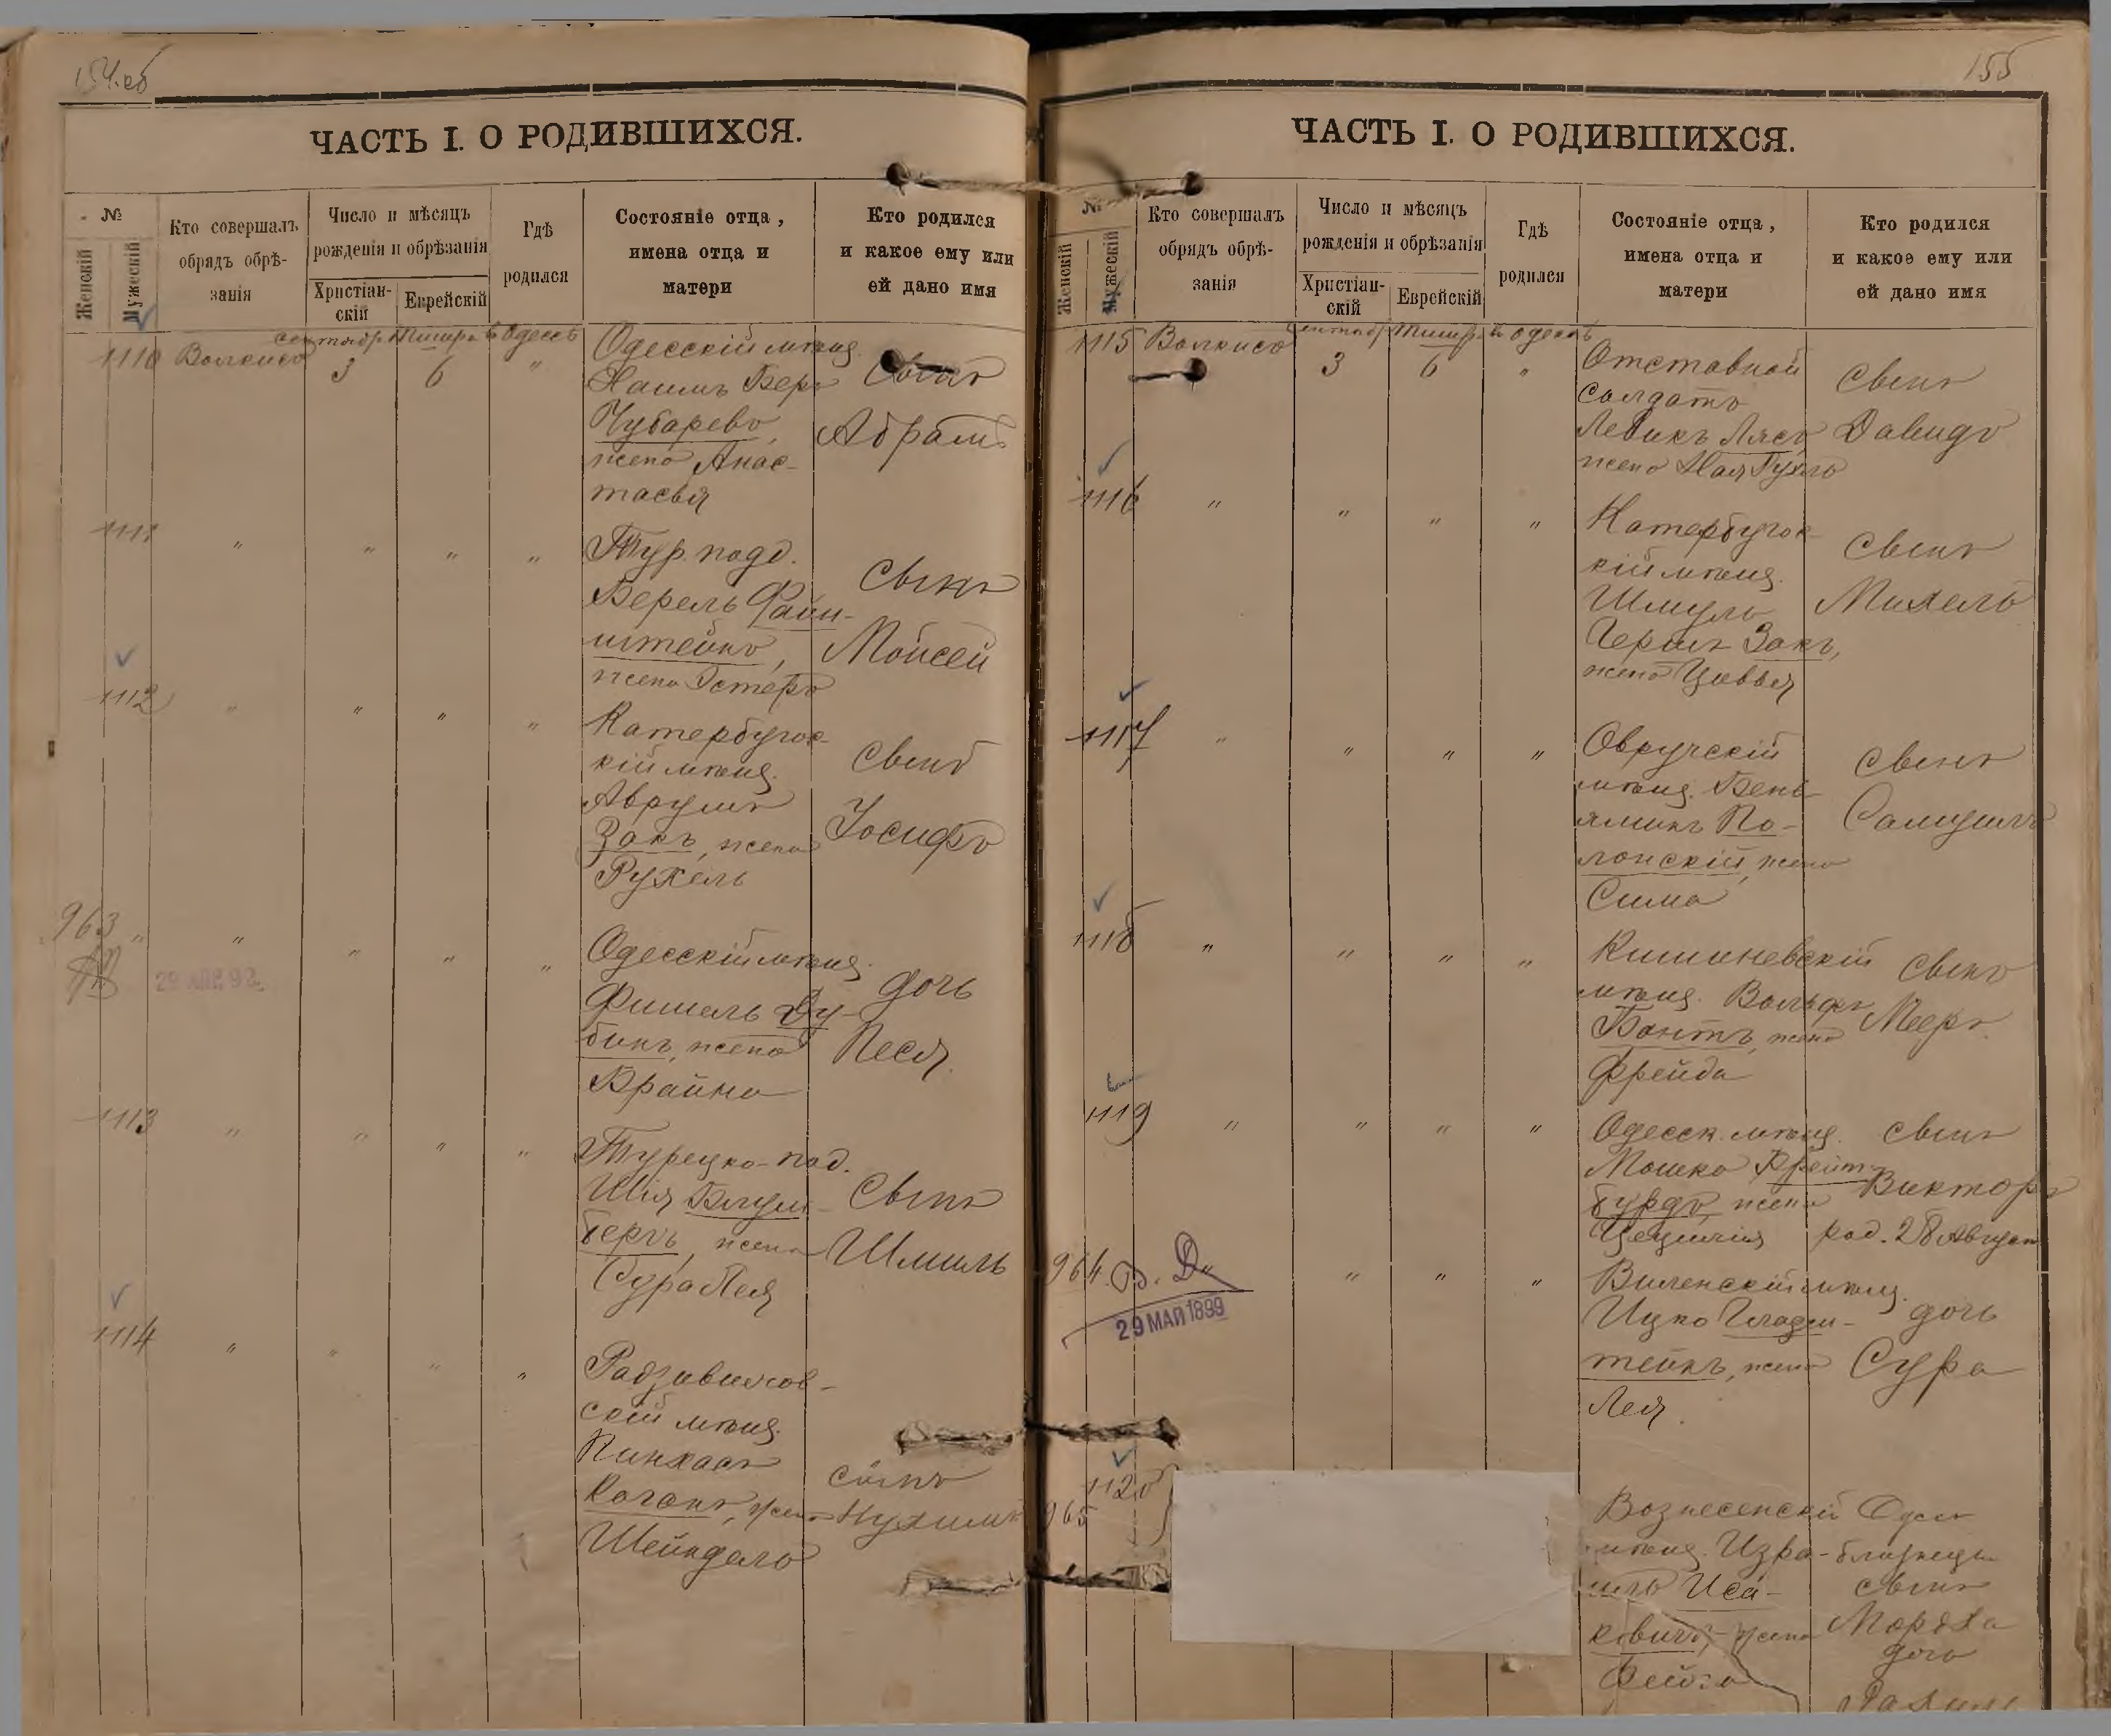 154об
ЧАСТЬ I. О РОДИВШИХСЯ.
№
Женскій
Мужескій
Кто совершалъ
обрядъ обрѣ-
занія
Число и мѣсяцъ
рожденія и обрѣзанія
Христіан-
скій
Еврейскій
Гдѣ
родился
Состояніе отца,
имена отца и
матери
Кто родился
и какое ему или
ей дано имя
сентябр. Тишри въ Одессѣ
1110 Волкисъ 3 6 "
Одесскій мѣщ.
Хаимъ Беръ
Чубаревъ,
жена Анас-
тасья
Сынъ
Абрамъ
1111 " " " "
Тур. подд.
Берель Файн-
штейнъ,
жена Эстеръ
Сынъ
Мойсей
1112 " " " "
Катербургс-
кій мѣщ.
Аврумъ
Закъ, жена
Рухель
Сынъ
Іосифъ
963 " " " " "
29 АПР. 9
Одесскій мѣщ.
Фишель Ду-
бинъ, жена
Брайна
дочь
Песя.
1113 " " " "
Турецко-под.
Шія Блум-
бергъ, жена
Сура Лея
Сынъ
Шмиль
1114 " " " "
Радзивилов-
скій мѣщ.
Пинхасъ
Коганъ, жена
Шейндель
сынъ
Нухимъ
155
ЧАСТЬ I. О РОДИВШИХСЯ.
№
Женскій
Мужескій
Кто совершалъ
обрядъ обрѣ-
занія
Число и мѣсяцъ
рожденія и обрѣзанія
Христіан-
скій
Еврейскій
Гдѣ
родился
Состояніе отца,
имена отца и
матери
Кто родился
и какое ему или
ей дано имя
сентябр. Тишри въ Одессѣ
1115 Волкисъ 3 6 "
Отставной
солдатъ
Левикъ Лясъ
жена Хая Рухль
Сынъ
Давидъ
1116 " " " "
Катербургс-
кій мѣщ.
Шмуль
Гершъ Закъ,
жена Цивья
Сынъ
Михель
1117 " " " "
Овручскій
мѣщ. Бень-
яминъ По-
лонскій, жена
Сима
Сынъ
Самуилъ
1118 " " " "
Кишиневскій
мѣщ. Вольфъ
Бантъ, жена
Фрейда
Сынъ
Мееръ
1119 " " " "
Одесск. мѣщ.
Мошко Брейт-
бурдъ, жена
Цецилія
сынъ
Викторъ
род. 28 Август
964 В. Д. " " "
29 МАЙ 1899
Виленскій мѣщ.
Ицко Гладш-
тейнъ, жена
Лея.
дочь
Сура
1120
965
Вознесенскій
мѣщ. Изра-
иль Иса-
ковичъ, жена
Фейга
близнецы
сынъ
Мордха
дочь
Рахиль